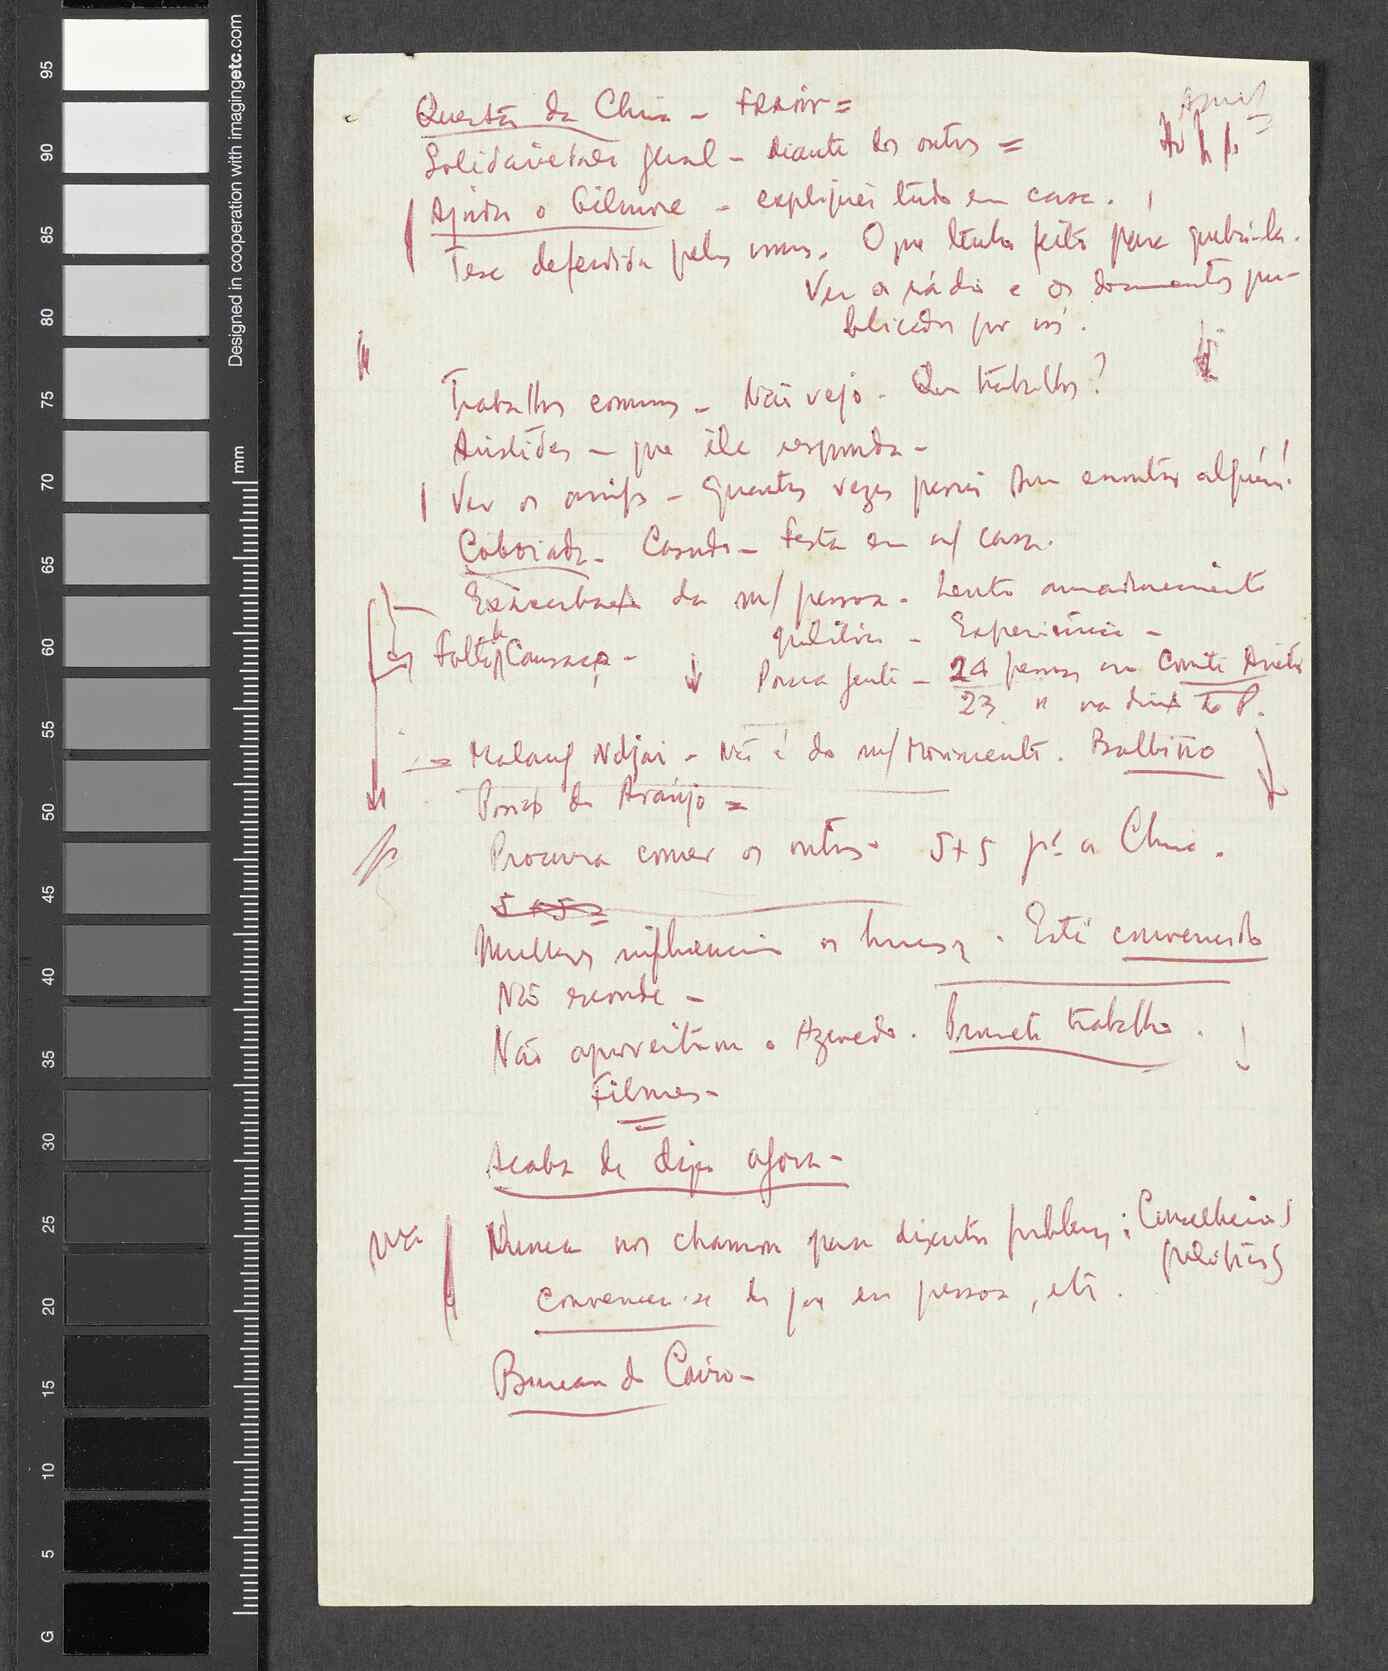 Questão da China - FRAIN =
Solidariedade geral - diante dos outros =
Ajuda o Gilmore - expliquei tudo em casa.
Tese defendida pelos meus. O que tenho feito para quebrá-la.
Ver a rádio e os documentos pu-
blicados por nós.
Trabalhos comuns - Não vejo. Que trabalhos?
Aristides - que ele responda -
Ver os amigos - Quantas vezes passei sem encontrar alguém!
Coboiada - Casado - festa em m/ casa.
da m/ pessoa - Lento amadurecimento
político - Experiência -
Falta de
Pouca gente - 24 pessoas no Comité
23 " na do P.
Malang Ndjai - Não é do m/ Movimento. Balbino
de Araújo =
Procura comer os outros. 5+5 pª a China.
5+5=
Mulheres influenciam os homens. Está convencido
Não esconde -
Não aproveitam o Azevedo. Promete trabalho.
Filmes -
Acaba de dizer agora -
Nunca nos chamou para discutir problemas; Conselheiros
políticos
convencer-se de que em pessoa, etc.
Bureau do Cairo -
95
90
85
80
75
70
65
60
55
50
45
40
35
30
25
20
15
10
5
G
mm
Designed in cooperation with imagingetc.com